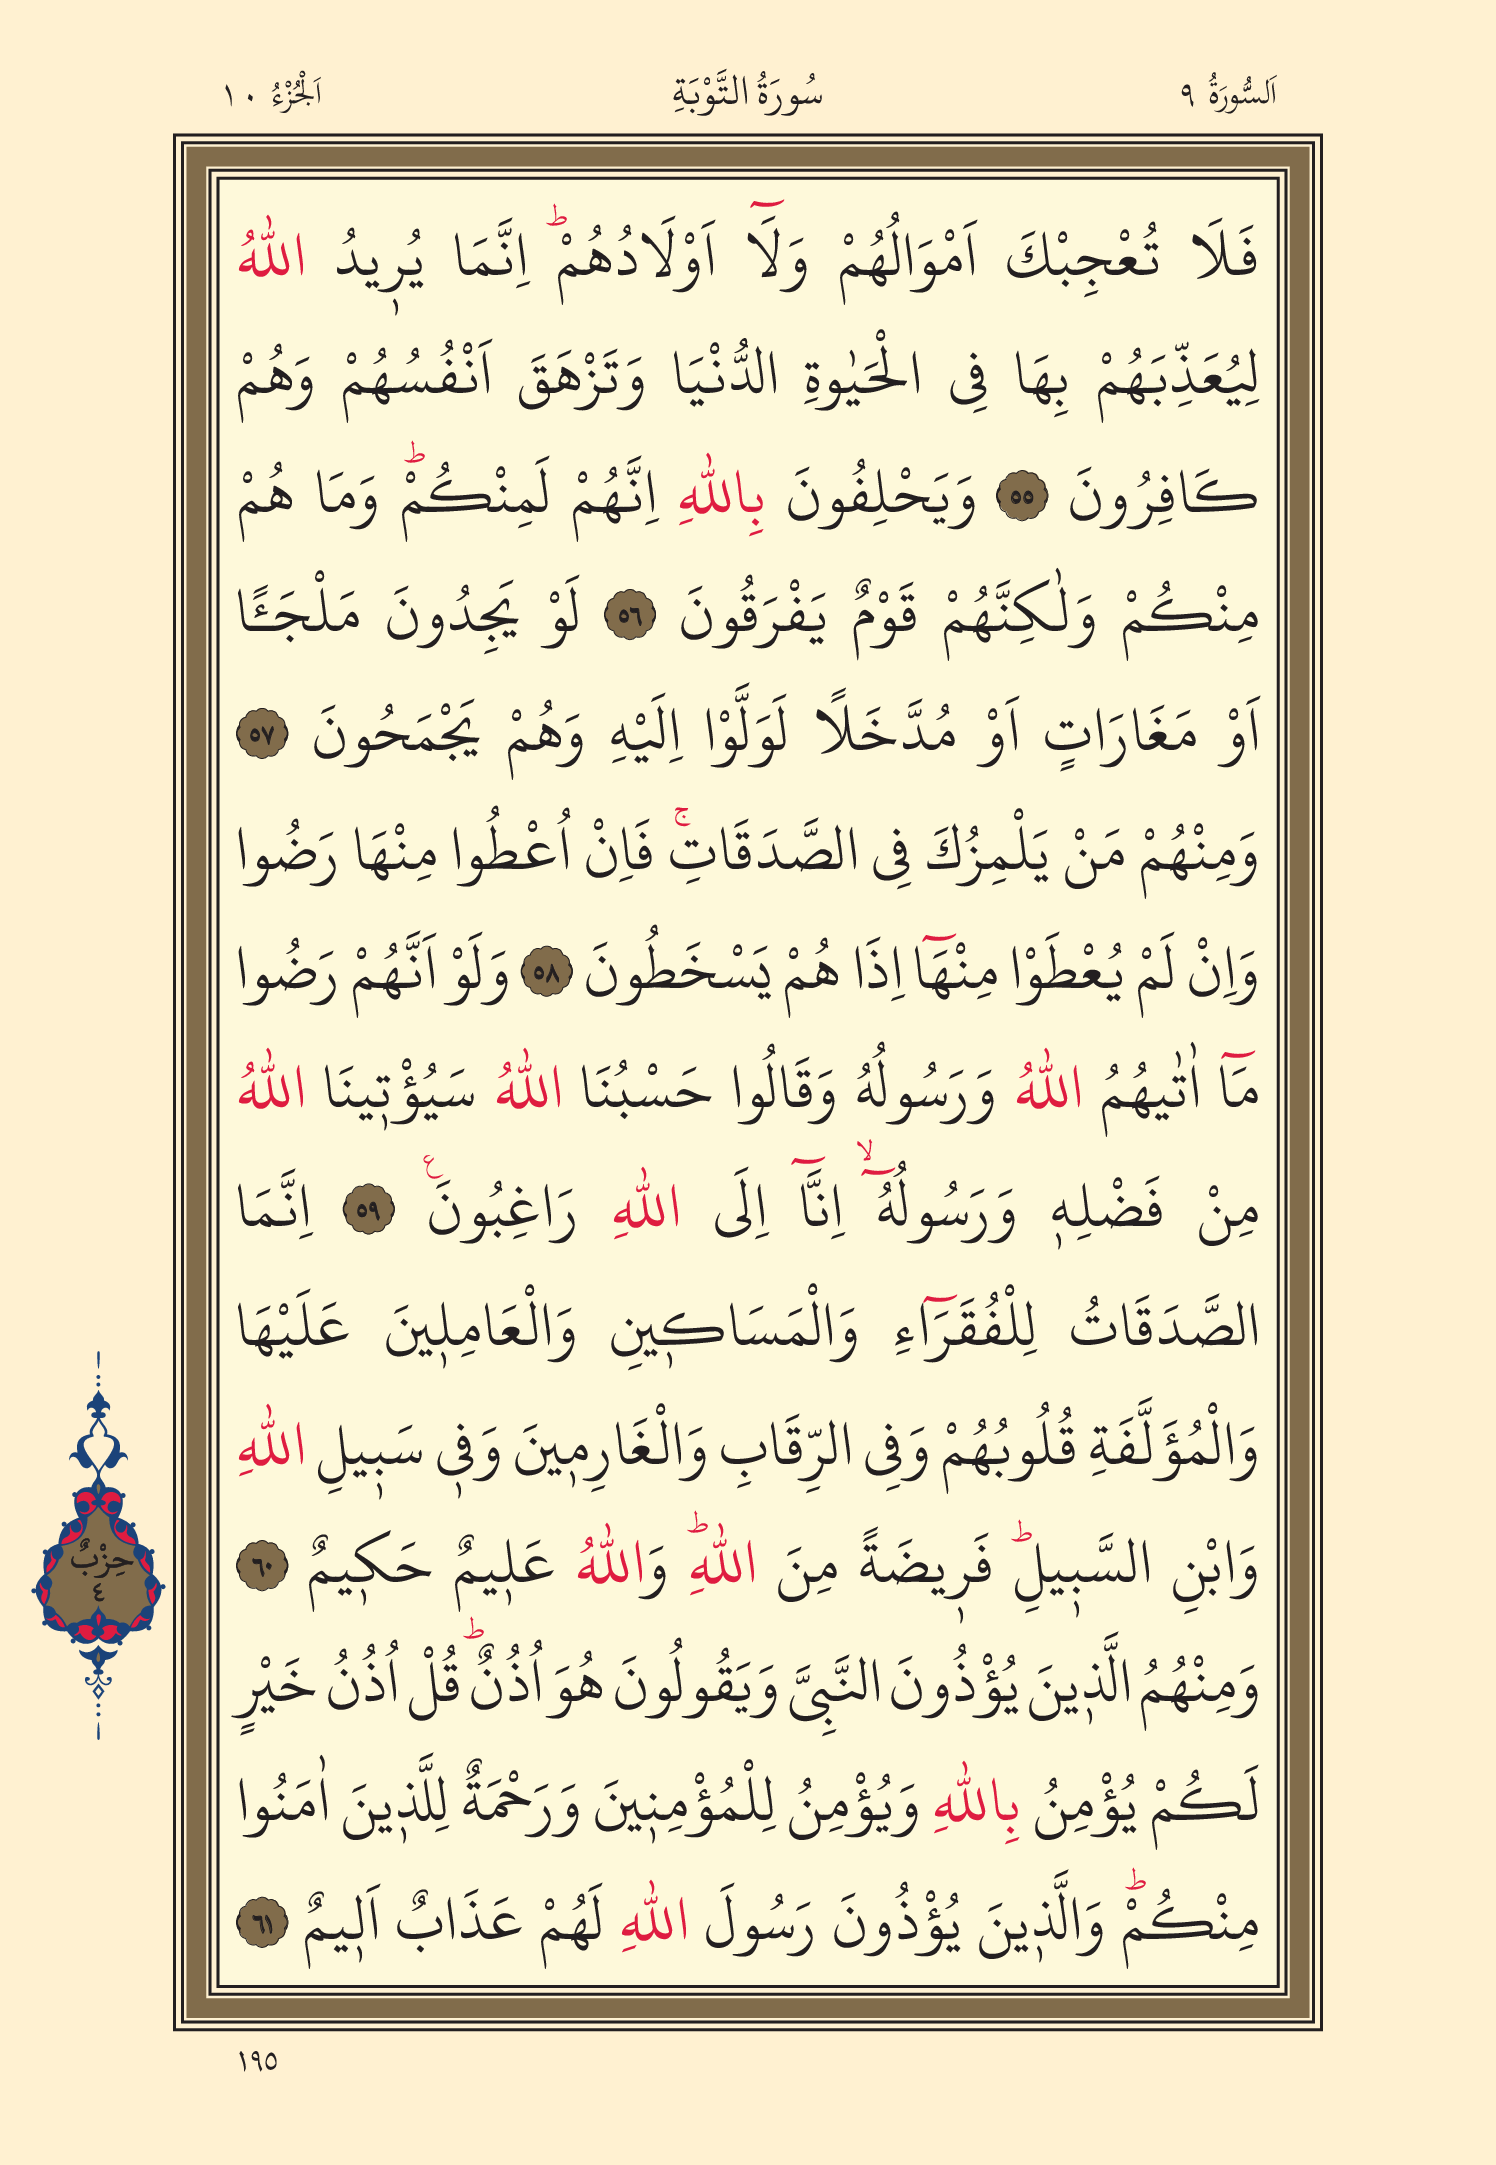 اَلسُّورَةُ ٩
سُورَةُ التَّوْبَةِ
اَلْجُزْءُ ١٠
فَلَا تُعْجِبْكَ اَمْوَالُهُمْ وَلَٓا اَوْلَادُهُمْۜ اِنَّمَا يُرٖيدُ اللّٰهُ
لِيُعَذِّبَهُمْ بِهَا فِى الْحَيٰوةِ الدُّنْيَا وَتَزْهَقَ اَنْفُسُهُمْ وَهُمْ
كَافِرُونَ ٥٥ وَيَحْلِفُونَ بِاللّٰهِ اِنَّهُمْ لَمِنْكُمْۜ وَمَا هُمْ
مِنْكُمْ وَلٰكِنَّهُمْ قَوْمٌ يَفْرَقُونَ ٥٦ لَوْ يَجِدُونَ مَلْجَـًٔا
اَوْ مَغَارَاتٍ اَوْ مُدَّخَلًا لَوَلَّوْا اِلَيْهِ وَهُمْ يَجْمَحُونَ ٥٧
وَمِنْهُمْ مَنْ يَلْمِزُكَ فِى الصَّدَقَاتِۚ فَاِنْ اُعْطُوا مِنْهَا رَضُوا
وَاِنْ لَمْ يُعْطَوْا مِنْهَٓا اِذَا هُمْ يَسْخَطُونَ ٥٨ وَلَوْ اَنَّهُمْ رَضُوا
مَٓا اٰتٰيهُمُ اللّٰهُ وَرَسُولُهُ وَقَالُوا حَسْبُنَا اللّٰهُ سَيُؤْتٖينَا اللّٰهُ
مِنْ فَضْلِهٖ وَرَسُولُهُٓۙ اِنَّٓا اِلَى اللّٰهِ رَاغِبُونَࣖ ٥٩ اِنَّمَا
الصَّدَقَاتُ لِلْفُقَرَٓاءِ وَالْمَسَاكٖينِ وَالْعَامِلٖينَ عَلَيْهَا
وَالْمُؤَلَّفَةِ قُلُوبُهُمْ وَفِى الرِّقَابِ وَالْغَارِمٖينَ وَفٖى سَبٖيلِ اللّٰهِ
وَابْنِ السَّبٖيلِۜ فَرٖيضَةً مِنَ اللّٰهِۜ وَاللّٰهُ عَلٖيمٌ حَكٖيمٌ ٦٠
وَمِنْهُمُ الَّذٖينَ يُؤْذُونَ النَّبِىَّ وَيَقُولُونَ هُوَ اُذُنٌۜ قُلْ اُذُنُ خَيْرٍ
لَكُمْ يُؤْمِنُ بِاللّٰهِ وَيُؤْمِنُ لِلْمُؤْمِنٖينَ وَرَحْمَةٌ لِلَّذٖينَ اٰمَنُوا
مِنْكُمْۜ وَالَّذٖينَ يُؤْذُونَ رَسُولَ اللّٰهِ لَهُمْ عَذَابٌ اَلٖيمٌ ٦١
حِزْبٌ
٤
١٩٥